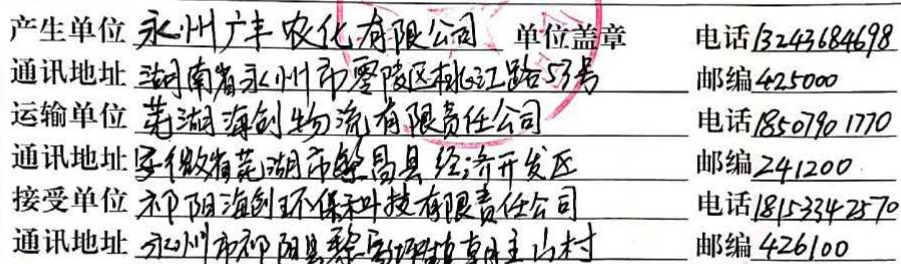 产生单位 永州广丰农化有限公司 单位盖章 电话 13243684698
通讯地址 湖南省永州市零陵区桃江路53号 邮编 425000
运输单位 芜湖海创物流有限责任公司 电话 18507901770
通讯地址 安徽省芜湖市繁昌县经济开发区 邮编 241200
接受单位 祁阳海创环保科技有限责任公司 电话 18153342570
通讯地址 永州市祁阳县黎家坪镇朝主山村 邮编 426100